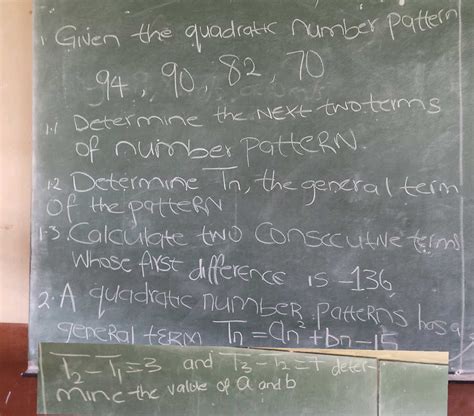 1. Given the quadratic number pattern
94, 90, 82, 70
1.1 Determine the NEXT two terms
of number PATTERN.
1.2 Determine Tn, the general term
Of the pattern
1.3. Calculate two Consecutive terms
whose first difference is -136
2. A quadratic number patterns has a
general term Tn = an² + bn - 15
T2 - T1 = 3 and T3 - T2 = 7 deter-
mine the value of a and b